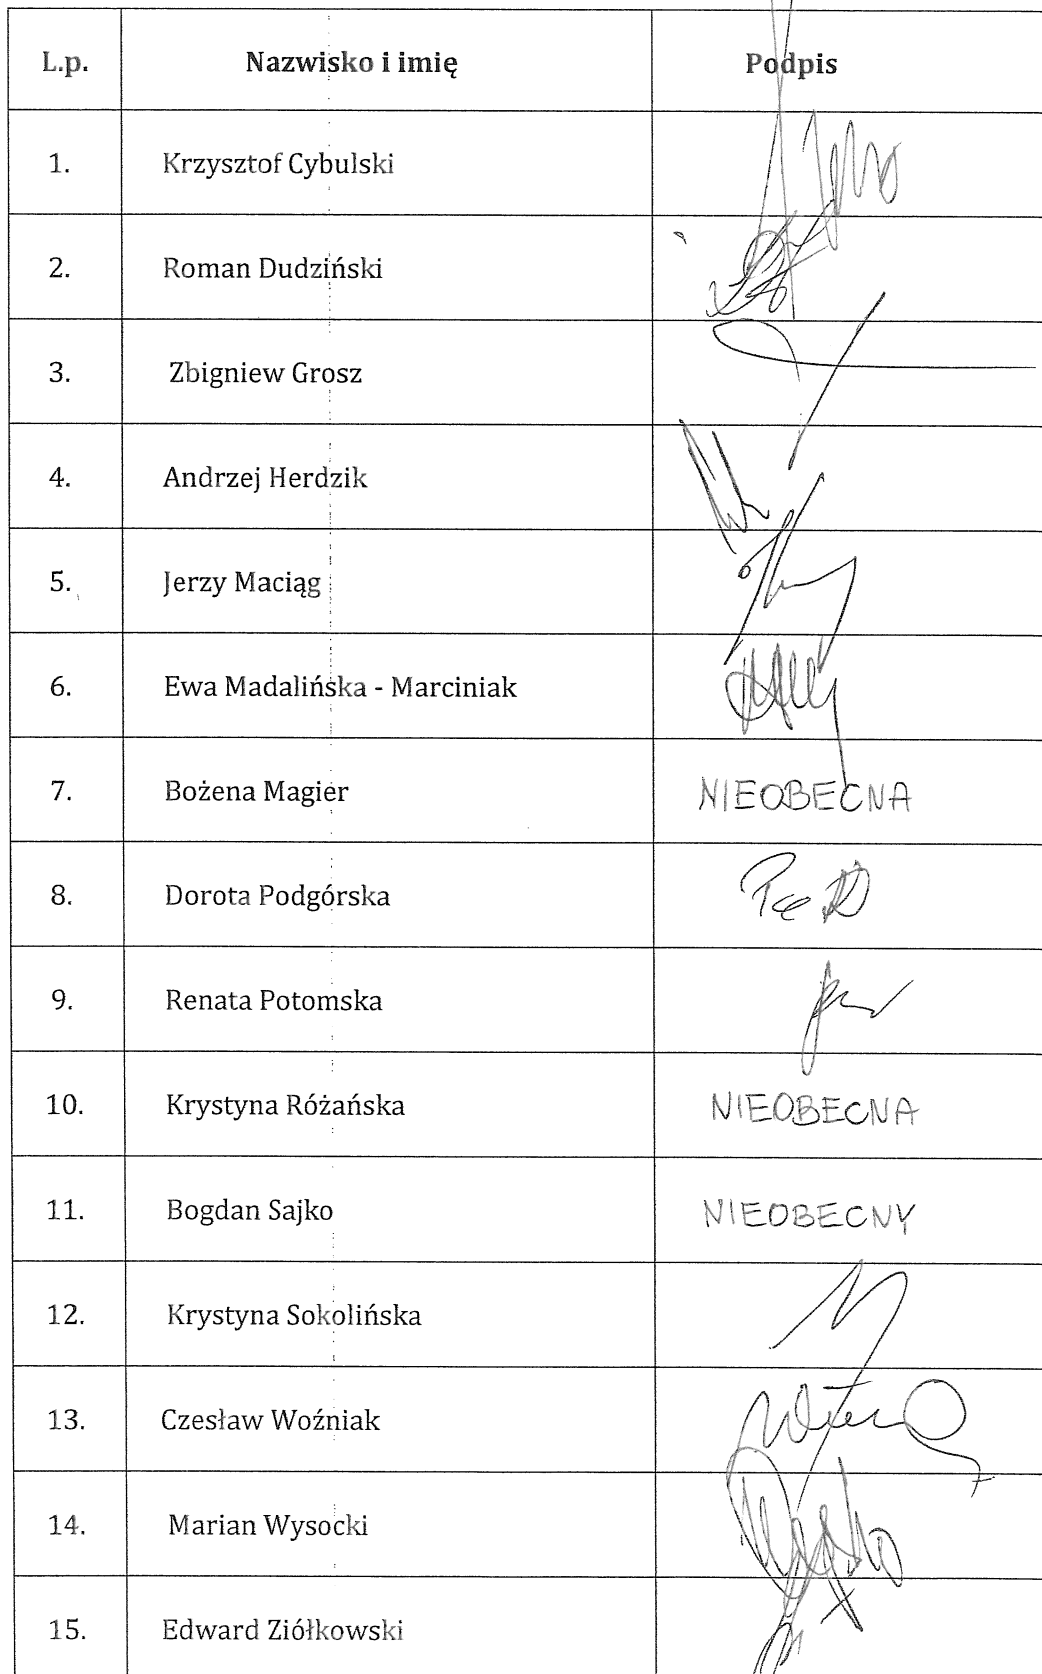 L.p. Nazwisko i imię Podpis
1. Krzysztof Cybulski
2. Roman Dudziński
3. Zbigniew Grosz
4. Andrzej Herdzik
5. Jerzy Maciąg
6. Ewa Madalińska - Marciniak
7. Bożena Magier NIEOBECNA
8. Dorota Podgórska
9. Renata Potomska
10. Krystyna Różańska NIEOBECNA
11. Bogdan Sajko NIEOBECNY
12. Krystyna Sokolińska
13. Czesław Woźniak
14. Marian Wysocki
15. Edward Ziółkowski